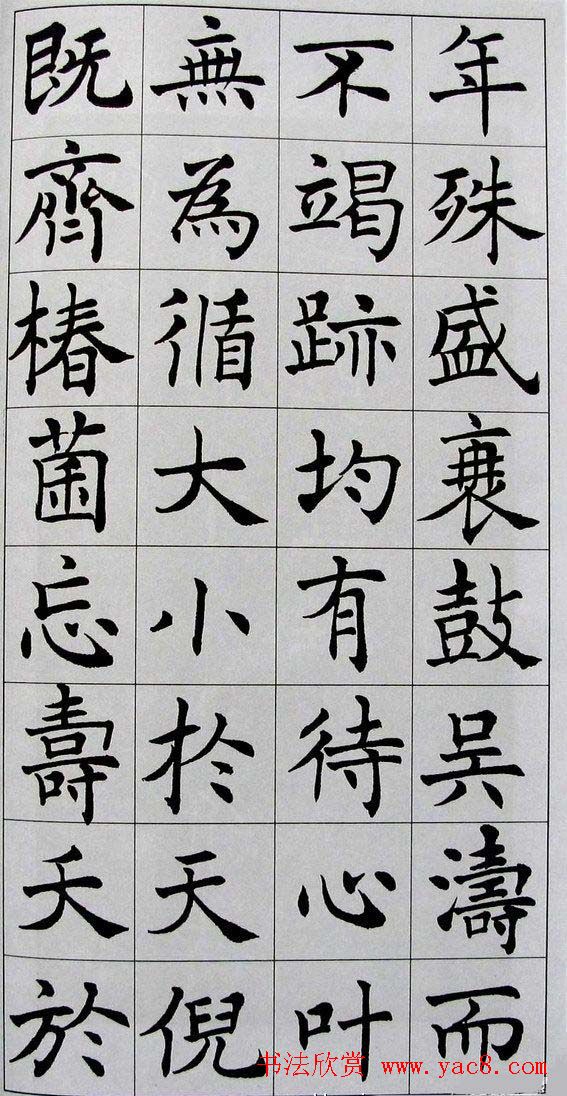 年殊盛衰鼓吴濤而
不竭跡均有待心叶
無為循大小於天倪
既齊椿菌忘壽夭於
书法欣赏 www.yac8.com